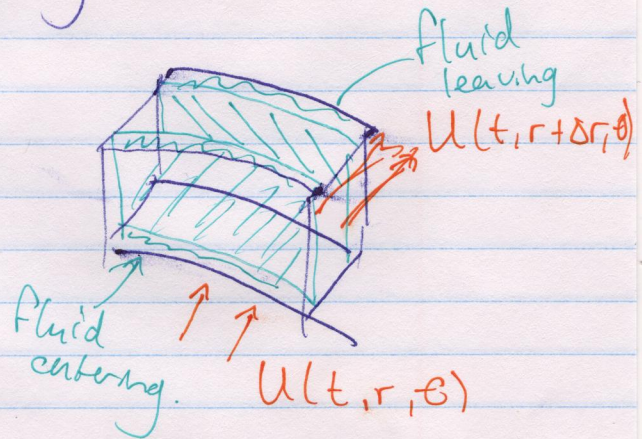 fluid
leaving
U(t,r+Δr,θ)
fluid
entering.
U(t,r,θ)